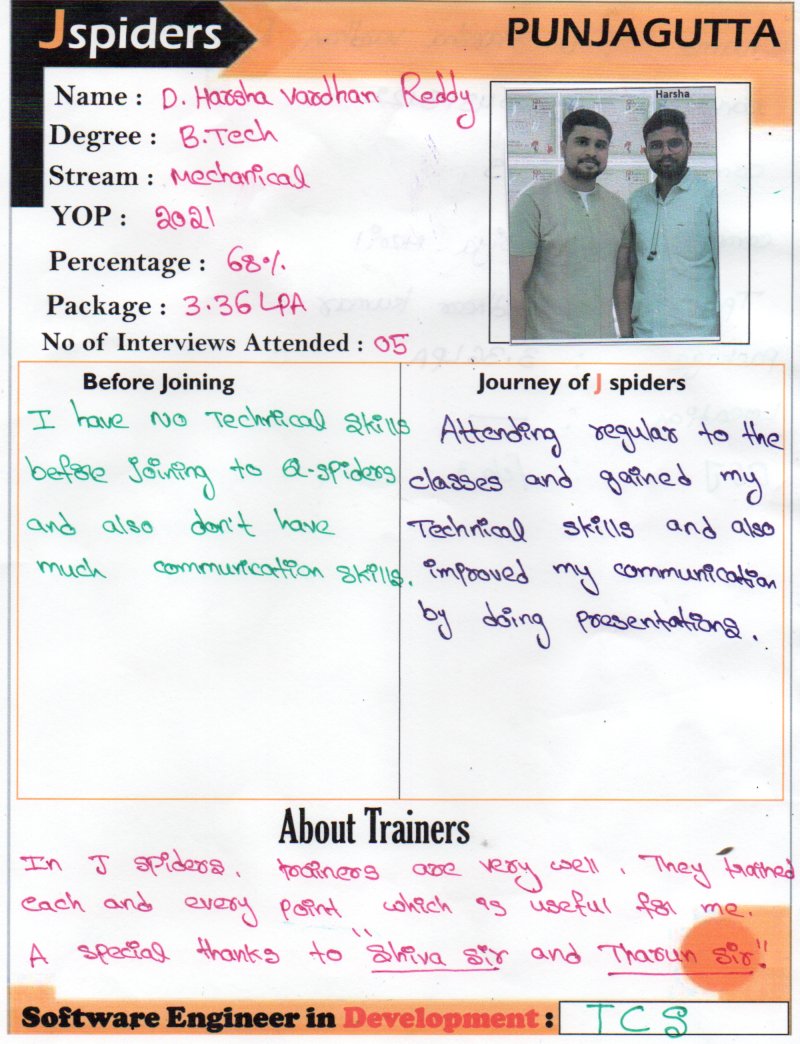 Jspiders
PUNJAGUTTA
Name : D. Harsha Vardhan Reddy
Degree : B.Tech
Stream : Mechanical
YOP : 2021
Percentage : 68%
Package : 3.36 LPA
No of Interviews Attended : 05
Harsha
Before Joining
I have no Technical Skills
before joining to Q-spiders
and also don't have
much communication skills.
Journey of J spiders
Attending regular to the
classes and gained my
Technical skills and also
improved my communication
by doing presentations.
About Trainers
In J spiders, trainers are very well. They trained
each and every point which is useful for me.
A special thanks to "Shiva sir and Tharun sir".
Software Engineer in Development : TCS